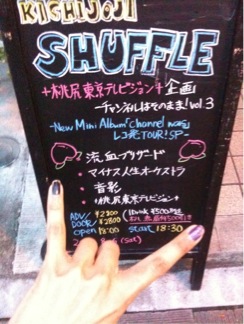 KICHIJOJI
SHUFFLE
+桃尻東京テレビジョン+企画
ーチャンネルはそのまま! vol 3
-New Mini Album "Channel
レコ発TOUR! SP-
流血ブリザード
・マイナス人生オーケストラ
・音影
+桃尻東京テレビジョン+
ADV/¥2300
DOOR/¥2800
open 18:00 start 18:30
(Sat)